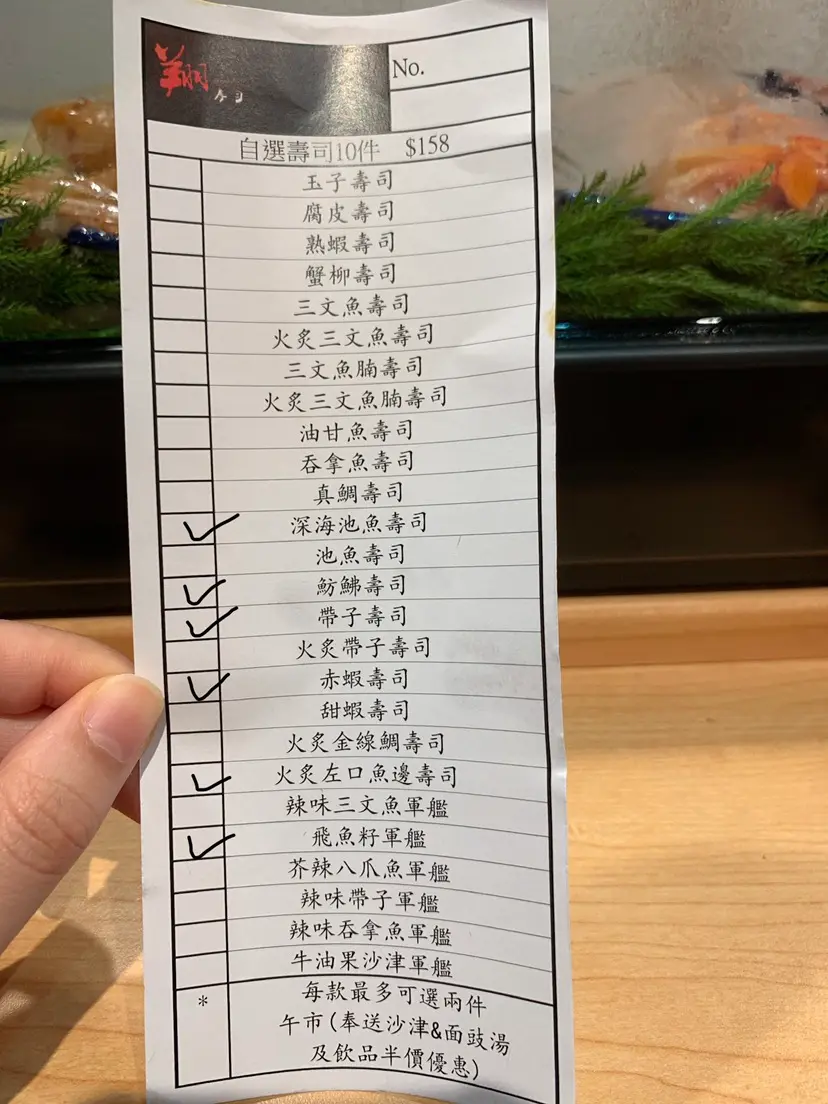 翔
No.
自選壽司10件 $158
玉子壽司
腐皮壽司
熟蝦壽司
蟹柳壽司
三文魚壽司
火炙三文魚壽司
三文魚腩壽司
火炙三文魚腩壽司
油甘魚壽司
吞拿魚壽司
真鯛壽司
深海池魚壽司
池魚壽司
魴鮄壽司
帶子壽司
火炙帶子壽司
赤蝦壽司
甜蝦壽司
火炙金線鯛壽司
火炙左口魚邊壽司
辣味三文魚軍艦
飛魚籽軍艦
芥辣八爪魚軍艦
辣味帶子軍艦
辣味吞拿魚軍艦
牛油果沙津軍艦
* 每款最多可選兩件
午市(奉送沙津&面豉湯
及飲品半價優惠)